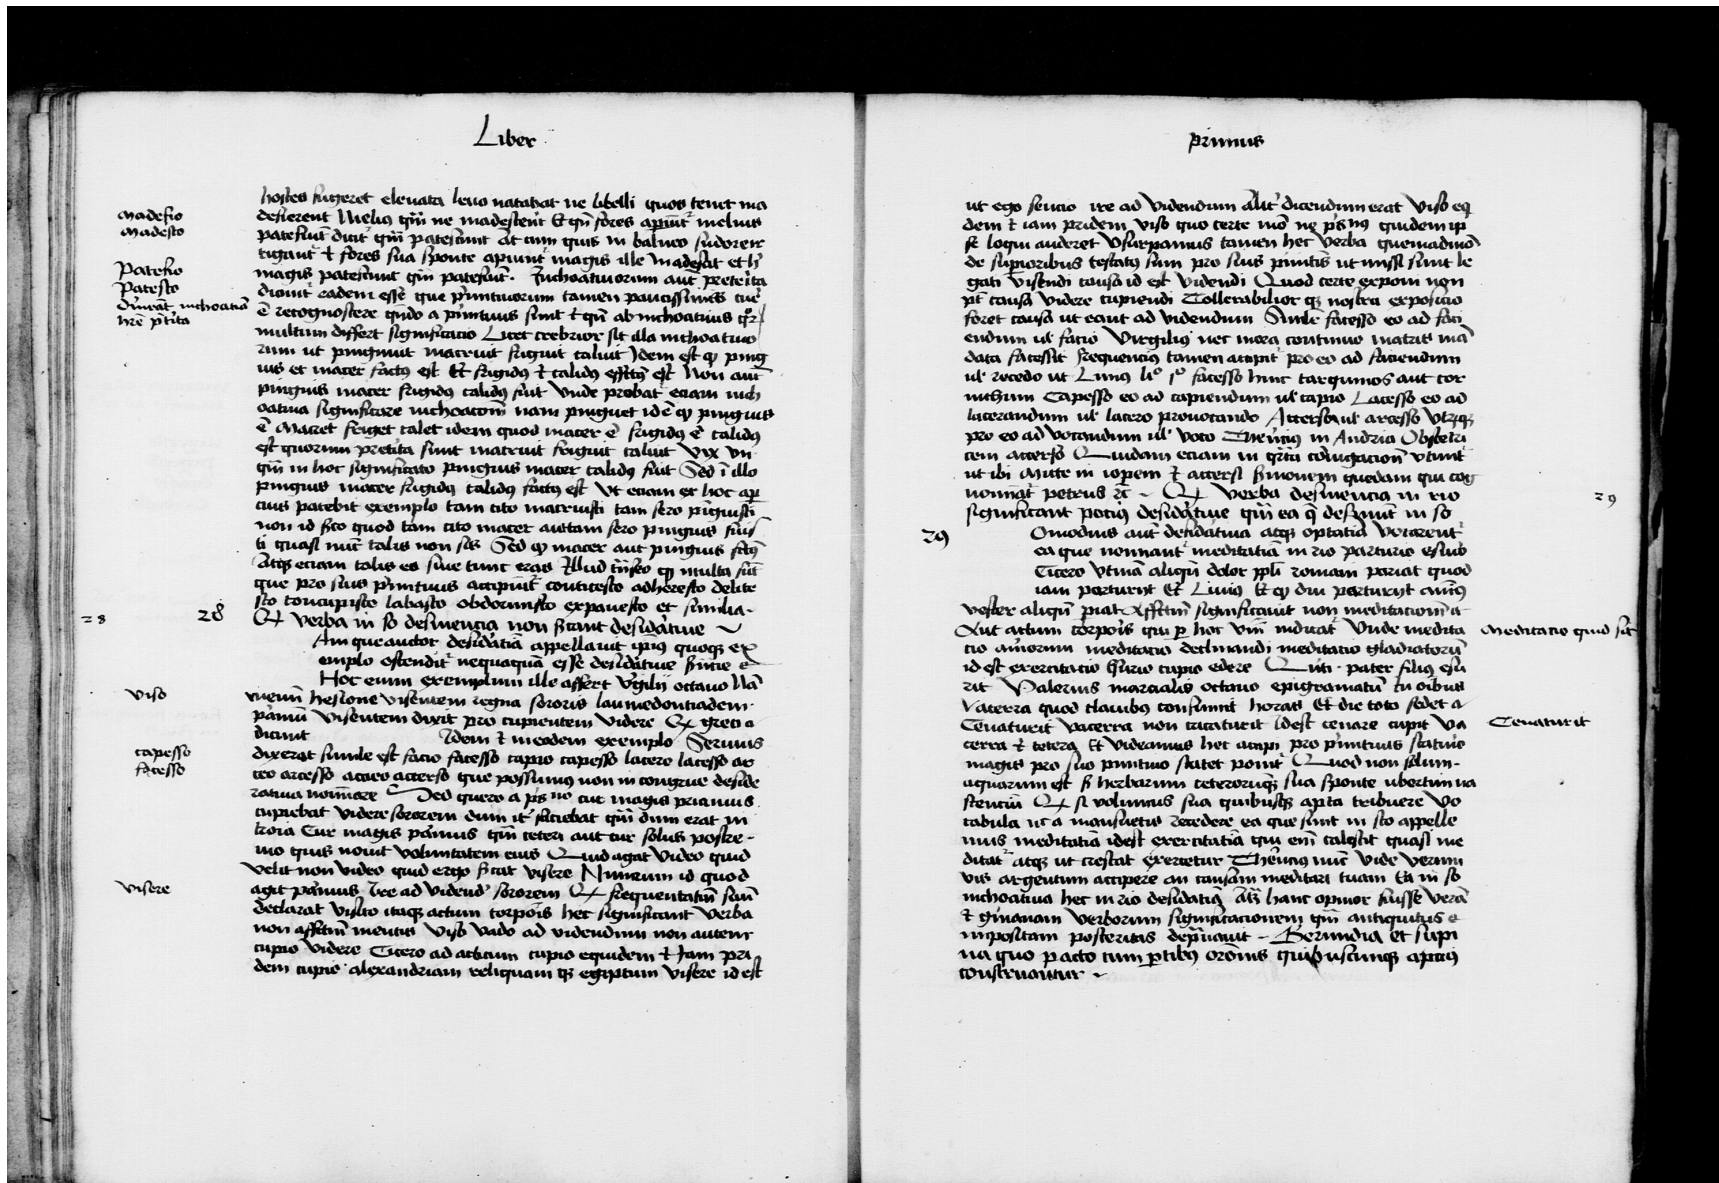 Liber
madefio
madesco
Patefio
Patesco
inchoatiua
hostes fugeret eleuata leua natabat ne libelli quos tenet ma
defierent Melius qm̄ ne madescerēt Et qn̄ fores apiūt melius
patefiūt dicit qm̄ patescunt at cum quis in balneo sudorem
magis patescunt qm̄ patefiūt. Inchoatiuorum aut preterita
dicūt eadem esse que pͥmitiuorum tamen paucissimis
ē recognoscere qn̄do a pͥmitiuis sunt et qn̄ ab inchoatiuis
multum differt significatio Licet crebrior sit illa inchoatiuo
rum ut pinguuit macruit friguit caluit Idem est ꝙ ping
uis et macer factꝰ est Et frigidꝰ et calidꝰ effectꝰ est Non aut
pinguis macer frigidꝰ calidꝰ fuit Vnde probat eciam inch
oatiua significare inchoacōm nam pinguet idē ꝙ pinguis
ē Macret friget calet idem quod macer ē frigidꝰ ē calidꝰ
est quorum pͥterita sunt macruit friguit caluit Vix vn
qm̄ in hoc significato pinguis macer calidꝰ fuit Sed ī illo
pinguis macer frigidꝰ calidꝰ factꝰ est Vt eciam ex hoc
cius patebit exemplo tam cito macruisti tam sero pīguisti
non id sco quod tam cito macer aut tam sero pinguis fuis
ti quasi nūc talis non sis Sed ꝙ macer aut pinguis
Atqꝫ eciam talis es siue tunc eras Illud ꝙ multa sūt
que pro suis pͥmitiuis accipiūt conticesco adheresco delite
sco concupisco labasco obdormisco expauesco et similia.
28 28 Qꝫ verba in so desinencia non sunt desidͣtiue
Am que auctor desidatiua appellauit ipīus quoqꝫ ex
emplo ostendit nequaquā esse desidatiue
Hoc enim exemplum ille affert Virgilij octauo Nā
viso ueniūt hesione visentem regna sororis laumedontiadem
pͥamū Visentem dixit pro cupientem videre Qꝫ greci
dicunt Idem et in eodem exemplo Seruius
capesso dixerat simile est facio facesso capio capesso lacero lacesso ar
facesso ceo arcesso accieo accerso que possumus non incongrue deside
ratiua noīare Sed quero a cur magis priamus
cupiebat videre sororem dum it faciebat qm̄ dum erat in
troia Cur magis pͥamus qm̄ ceteri aut cur solus postre-
mo quis nouit voluntatem eius Quid agat video quid
velit non video quid ergo sͥcat visere Nimirum id quod
visere agit pͥamus Ire ad vidend sororem Qꝫ frequentatiū suū
declarat visito itaqꝫ actum corpis hec significant verba
non affectū mentis viso vado ad videndum non autem
cupio videre Cicero ad acticum cupio equidem et iam pri
dem cupio alexandriam reliquam qꝫ egiptum visere id est
primus
ut ego sencio ire ad videndum alit dicendum erat viso eq
dem et iam pridem viso quo certe mō ne quidem ip
se loqui auderet Vsurpamus tamen hec verba quemadmō
de supioribus testatꝰ sum pro suis pͥmitiis ut missi sunt le
gati visendi causa id est videndi Quod certe exponi non
pt̄ causa videre cupiendi Tollerabilior qꝫ nostra exposicio
foret causa ut eant ad videndum Simile facesso eo ad faci
endum ul facio Virgilius nec mora continuo matris mā
data facessit frequencius tamen accipit pro eo ad faciendum
ul recedo ut Liuius liͦ pͦ facesso hinc tarquinios aut cor
nithum Capesso eo ad capiendum ul capio Lacesso eo ad
lacerandum ul lacero prouocando Accerso ul arcesso Vtrqꝫ
pro eo ad vocandum ul voco Therēcius in Andria Obstetri
cem accerso Quidam eciam in qrta cōiugacionē vtunt
ut ibi Mitte in iopem et accersi sͥmonem quedam qui cog
nominat petrus Qꝫ verba desinencia in rio
29 significant pocius desidatiue qm̄ ea q̄ desinunt in so
29 Omodius aut desidatiua atqꝫ optatiua vocarent
ea que nominant meditatiua in rio parturio esurio
Cicero Vtinā aliqn̄ dolor ppli romani pariat quod
iam parturit Et Liuius Et ꝙ diu parturit
vester aliqn̄ pͥat Affectm̄ significauit non meditacionem
Meditacio quid sit Aut actum corporis qui p hoc indicat Vnde medita
cio armorum meditacio declinandi meditacio gladiatorū
id est exercitacio Esurio cupio edere pater filius esu
rit Valerius marcialis octauo epigramatū In oībus
Vacerra quod clauibus consumit horas Et die toto sedet
Cenaturit Cenaturit vacerra non cacaturit Idest cenare cupit va
cerra et cetera Et videamus hec accipi pro pͥmitiuis scaturio
magis pro suo pͥmitiuo scatet ponit Quod non solum
aquarum est sͥ herbarum ceterorumqꝫ sua sponte ubertim na
scencium Qꝫ si volumus sua quibusqꝫ apta tribuere vo
cabula nec a mansuetis recedere ea que sunt in sco appelle
mus meditatiua idest exercitatiua qui enī calescit quasi me
ditat atqꝫ ut crescat exercetur Therēcius nūc vide verum
vis argentum accipere an causam meditari tuam Ea in so
inchoatiua hec in rio desidatiua Atqꝫ hanc opinor fuisse verā
et germanam verborum significationem qm̄ antiquitus
impositam posteritas depͥuauit Gerundia et supi
na quo pacto cum ptibus oronis quibuscunqꝫ apcius
construantur